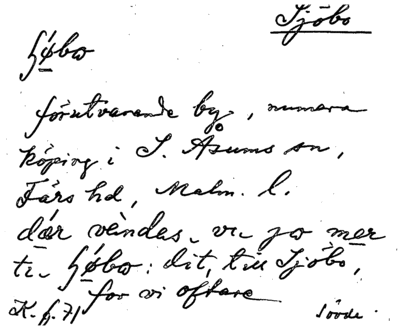 Sjöbo
ʃǿbω
förutvarande by, numera
köping i S. Åsums sn,
Färs hd, Malm. l.
där vändas, vi jo mer
ti ʃǿbω: dit, till Sjöbo,
for vi oftare
K. f. 71 Sövde